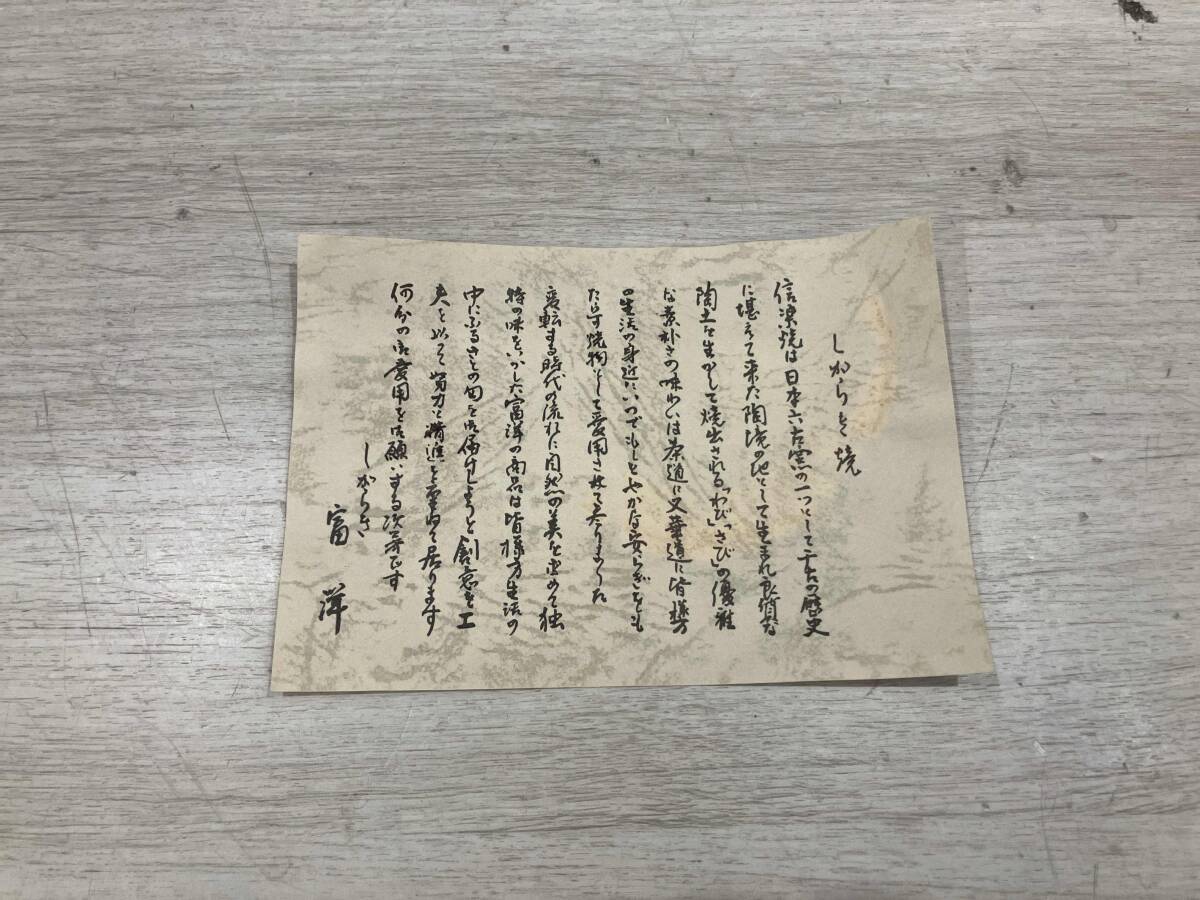 しがらき焼
信楽焼は日本六古窯の一つとして千古の歴史
に堪えて来た陶境の地として生まれ良質な
陶土を生かして焼出される「わび」「さび」の優雅
な素朴さの味わいは茶道に又華道に皆様方
の生活の身近にいつでもしとやかな安らぎをも
たらす焼物として愛用されて参りました
変転する時代の流れに自然の美を求めて独
特の味をいかした富洋の商品は皆様方生活の
中にふるさとの旬をお届けしようと創意を工
夫を以って努力と精進を重ねて居ります
何分の御愛用を御願いする次第です
しがらき
富洋